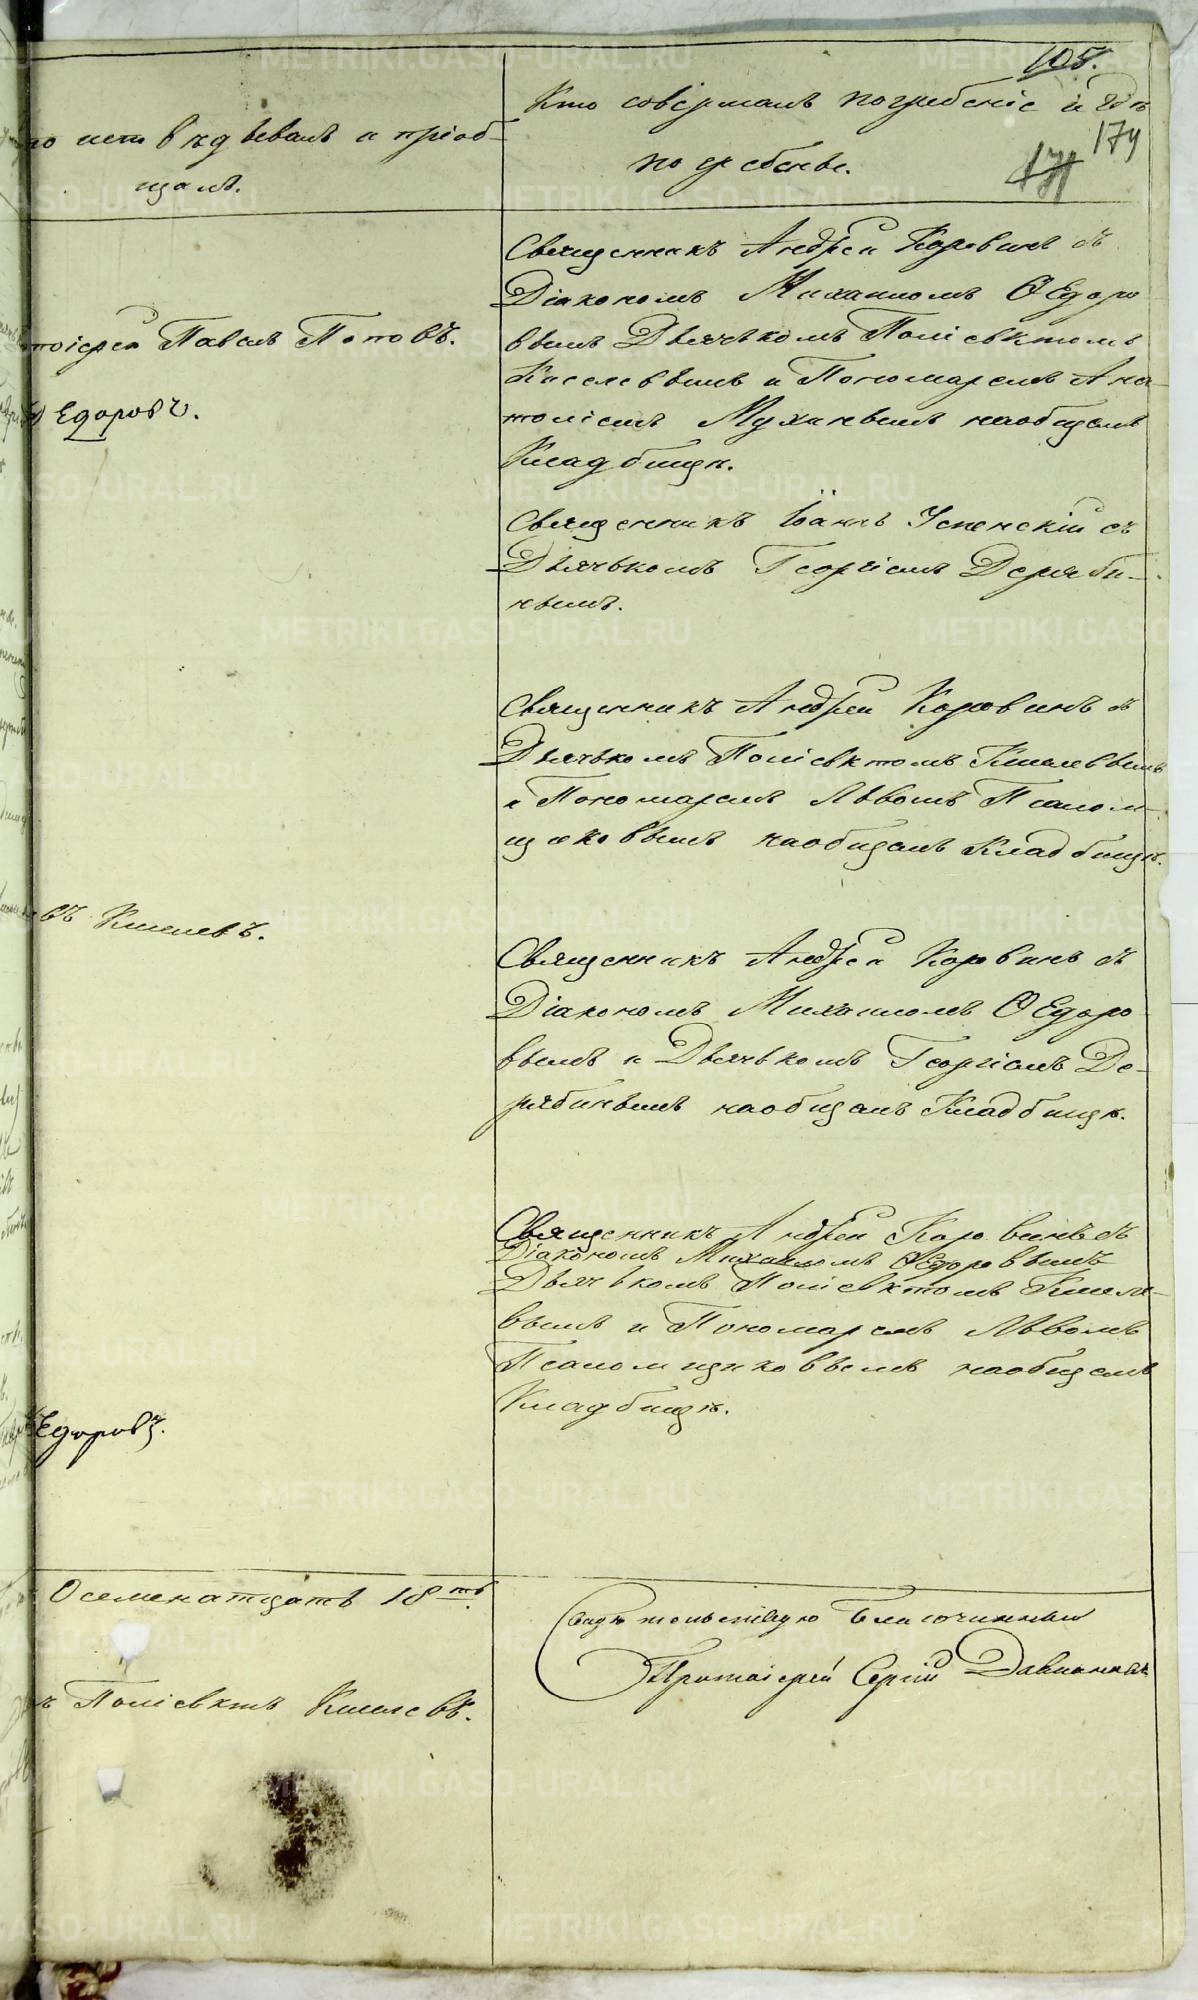 105.
174
171
то исповѣдывалъ и пріоб-
щалъ.
Кто совершалъ погребеніе и гдѣ
погребены.
Священникъ Андрей Коровинъ съ
Діакономъ Михаиломъ Ѳедоро
вымъ Дьячькомъ Поліевктомъ
Киселевымъ и Пономаремъ Ана-
толіемъ Мухинымъ наобщемъ
Кладбищѣ.
тоіерей Павелъ Поповъ.
Ѳедоровъ.
Священникъ Іоаннъ Успенскій съ
Дьячькомъ Георгіемъ Деряби-
нымъ.
Священникъ Андрей Коровинъ съ
Дьячькомъ Поліевктомъ Киселевымъ
и Пономаремъ Львомъ Псалом-
щиковымъ наобщемъ Кладбищѣ.
въ Киселевъ.
Священникъ Андрей Коровинъ съ
Діакономъ Михаиломъ Ѳедоро
вымъ и Дьячькомъ Георгіемъ Де-
рябинымъ наобщемъ Кладбищѣ.
Священникъ Андрей Коровинъ съ
Діакономъ Михаиломъ Ѳедоровымъ
Дьячькомъ Поліевктомъ Киселе-
вымъ и Пономаремъ Львомъ
Псаломщиковымъ наобщемъ
Кладбищѣ.
Ѳедоровъ.
Осемнатцать 18ть.
ъ Поліевктъ Киселевъ.
Свидѣтельствую Благочинный
Протоіерей Сергій
METRIKI.GASO-URAL.RU